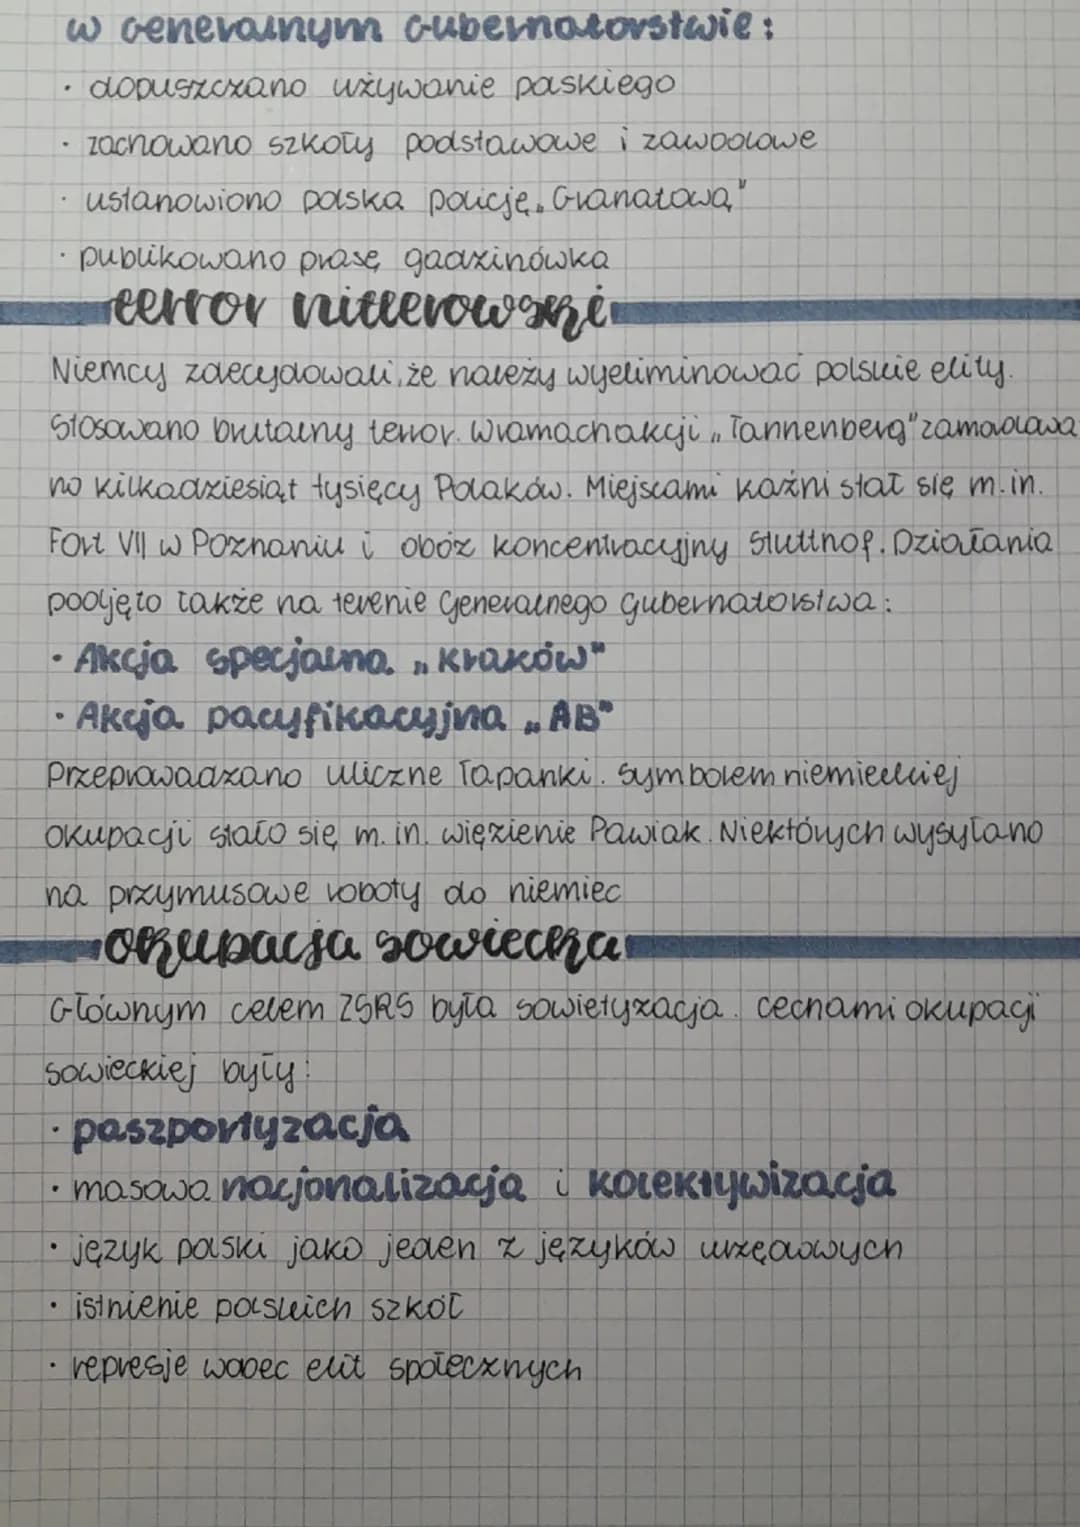 w Generalnym Gubernatorstwie:
· dopuszczano używanie polskiego
· zachowano szkoły podstawowe i zawodowe
· ustanowiono polską policję „Granatową"
· publikowano prasę gadzinówka
terror hitlerowski
Niemcy zdecydowali, że należy wyeliminować polskie elity.
Stosowano brutalny terror. W ramach akcji „Tannenberg" zamordowa
no kilkadziesiąt tysięcy Polaków. Miejscami kaźni stał się m.in.
Fort VII w Poznaniu i obóz koncentracyjny Stutthof. Działania
podjęto także na terenie Generalnego Gubernatorstwa:
· Akcja specjalna „Kraków"
· Akcja pacyfikacyjna „AB"
Przeprowadzano uliczne łapanki. Symbolem niemieckiej
okupacji stało się m.in. więzienie Pawiak. Niektórych wysyłano
na przymusowe roboty do niemiec
okupacja sowiecka
Głównym celem ZSRS była sowietyzacja. Cechami okupacji
sowieckiej były:
· paszportyzacja
· masowa nacjonalizacja i kolektywizacja
· język polski jako jeden z języków urzędowych
· istnienie polskich szkół
· represje wobec elit społecznych